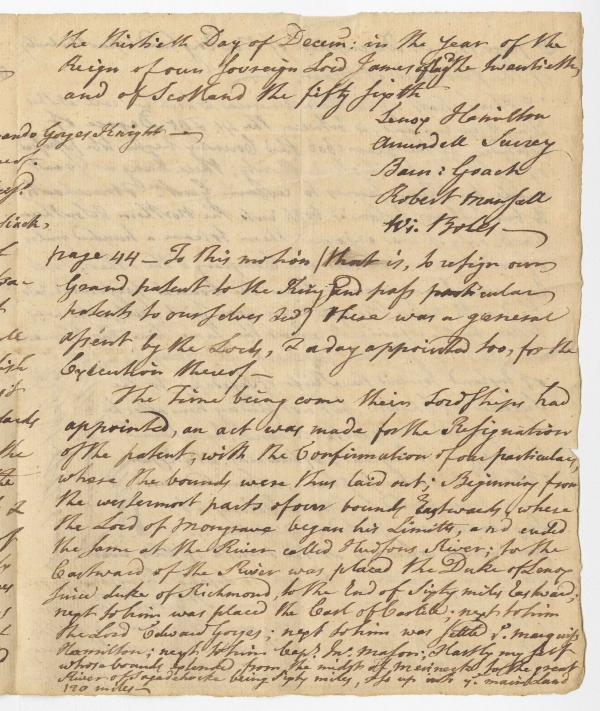 the thirtieth Day of Decem: in the year of the
Reign of our Sovereign Lord James the twentieth,
and of Scotland the fifty sixth
Lenox Hamilton
Arundell Surrey
Barn: Goach
Robert Mansell
Wi. Boles
Gorges Knight
page 44 - To this motion (that is, to resign our
Grand patent to the King, and pass particular
patents to ourselves &c) there was a general
assent by the Lords, & a day appointed too, for the
Execution thereof -
The Time being come their LordShips had
appointed, an act was made for the Resignation
of the patent, with the Confirmation of our particulars,
where the bounds were thus laid out; Beginning from
the westermost parts of our bounds Eastwards, where
the Lord of Mongrave began his Limitts, and ended
the same at the River called Hudsons River; to the
Eastward of the River was placed the Duke of Lenox
since duke of Richmond, to the End of Sixty miles Eastward;
next to him was placed the Earl of Carlile; next to him
the Lord Edward Gorges; next to him was settled ye. marquiss
Hamilton; next to him Capt. Jno. Mason; & lastly my self
whose bounds extended from the midst of Merineck to the great
River of Sagadehocke being Sixty miles, & so up into ye. main land
120 miles -